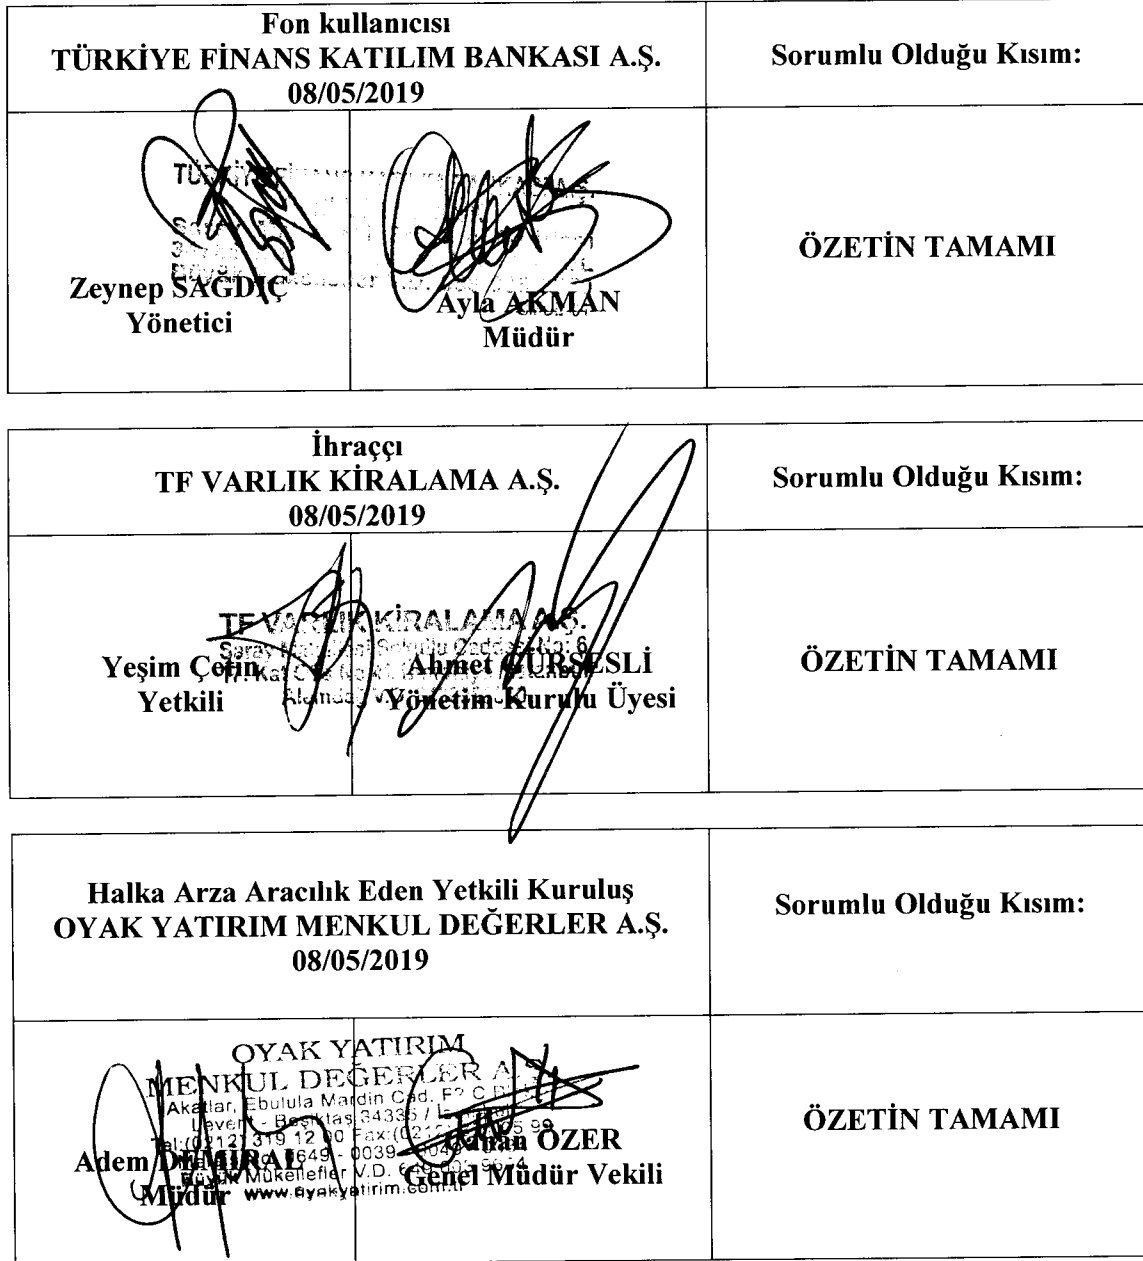 Fon kullanıcısı
TÜRKİYE FİNANS KATILIM BANKASI A.Ş.
08/05/2019
Sorumlu Olduğu Kısım:
Zeynep SAĞDIÇ
Yönetici
Ayla AKMAN
Müdür
ÖZETİN TAMAMI
İhraççı
TF VARLIK KİRALAMA A.Ş.
08/05/2019
Sorumlu Olduğu Kısım:
TF VARLIK KİRALAMA A.Ş.
Yeşim Çetin
Yetkili
Ahmet GÜRSESLİ
Yönetim Kurulu Üyesi
ÖZETİN TAMAMI
Halka Arza Aracılık Eden Yetkili Kuruluş
OYAK YATIRIM MENKUL DEĞERLER A.Ş.
08/05/2019
Sorumlu Olduğu Kısım:
OYAK YATIRIM
MENKUL DEĞERLER A.Ş.
Akatlar, Ebulula Mardin Cad.
Levent - Beşiktaş 34335 /
Tel:(0212) 319 12 00 Fax:
Büyük Mükellefler V.D.
www.oyakyatirim.com.tr
Adem DEMİRAL
Müdür
ÖZER
Genel Müdür Vekili
ÖZETİN TAMAMI